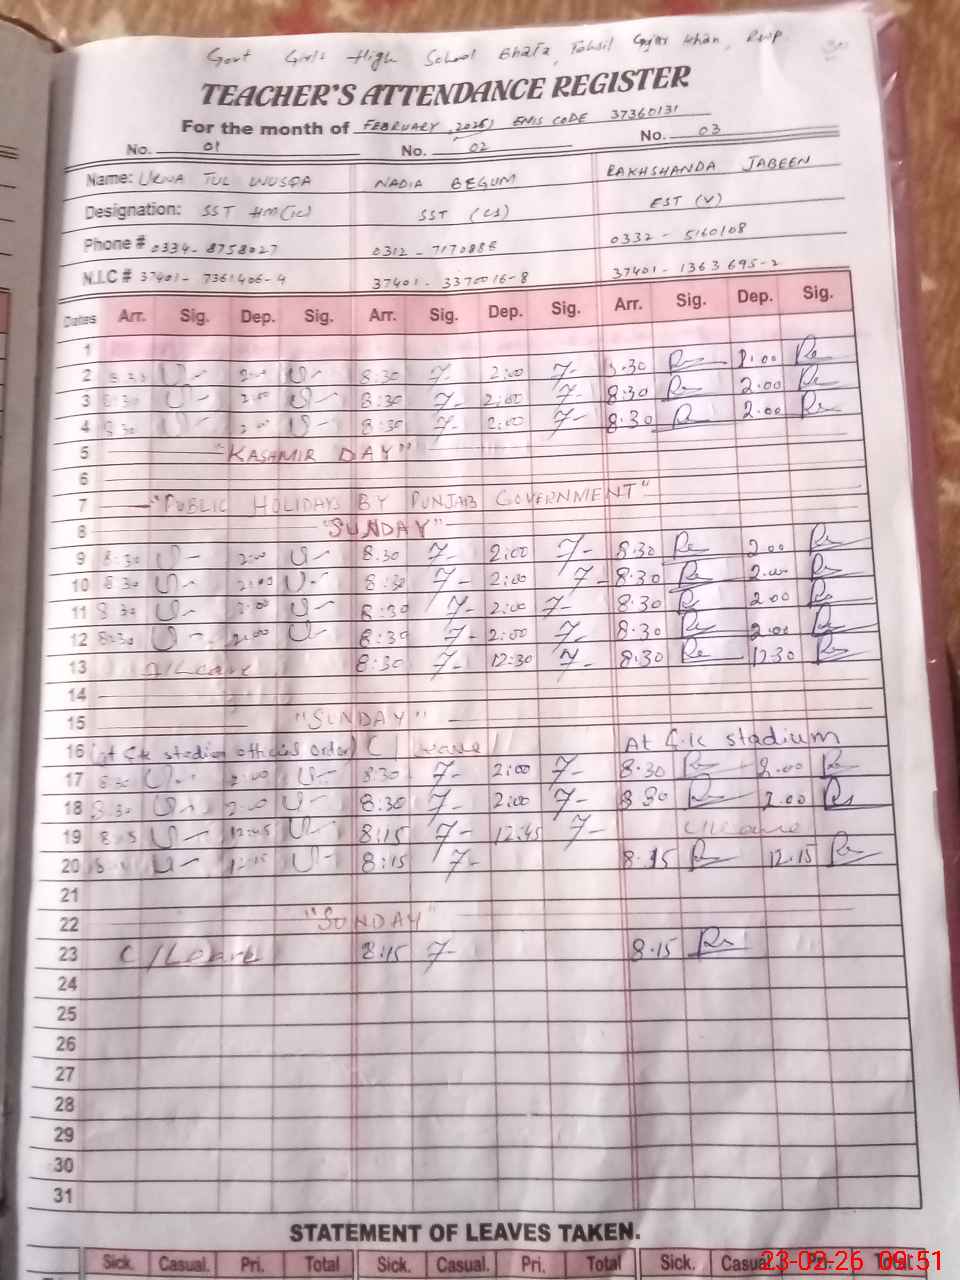 Govt Girls High School Bhata, Tehsil Gujar Khan, Rwp.
TEACHER'S ATTENDANCE REGISTER
For the month of FEBRUARY, 2026 EMIS CODE 37360131
No. 01 No. 02 No. 03
Name: NADIA BEGUM RAKHSHANDA JABEEN
Designation: SST HM(IC) SST (CS) EST (V)
Phone # 0334-8758027 0312-7170886 0332-5160108
N.I.C # 37401-7361406-4 37401-3370016-8 37401-1363695-2
Dates Arr. Sig. Dep. Sig. Arr. Sig. Dep. Sig. Arr. Sig. Dep. Sig.
1
2 8:30 2:00 8:30 2:00 8.30 2.00
3 8:30 2:00 8:30 2:00 8.30 2.00
4 8:30 2:00 8:30 2:00 8.30 2.00
5 "KASHMIR DAY"
6
7 "PUBLIC HOLIDAYS BY PUNJAB GOVERNMENT"
8 "SUNDAY"
9 8:30 2:00 8:30 2:00 8.30 2.00
10 8:30 2:00 8:30 2:00 8.30 2.00
11 8:30 2:00 8:30 2:00 8.30 2.00
12 8:30 2:00 8:30 2:00 8.30 2.00
13 8:30 12:30 8.30 12.30
14
15 "SUNDAY"
16 (at G.K stadium official order) C/Leave At G.K stadium
17 8:30 2:00 8:30 2:00 8.30 2.00
18 8:30 2:00 8:30 2:00 8.30 2.00
19 12:45 8:15 12:45 C/Leave
20 12:15 8:15 8.15 12.15
21
22 "SUNDAY"
23 C/Leave 8:15 8.15
24
25
26
27
28
29
30
31
STATEMENT OF LEAVES TAKEN.
Sick. Casual. Pri. Total Sick. Casual. Pri. Total Sick. Casual. Pri. Total
23-02-26 09:51